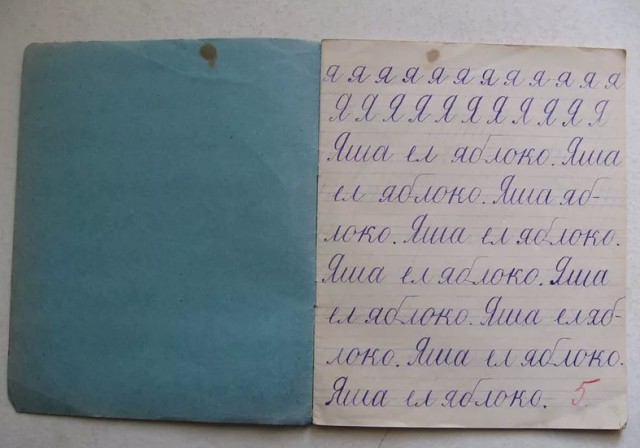 я я я я я я я я я я я я
Я Я Я Я Я Я Я Я Я Я Я
Яша ел яблоко. Яша
ел яблоко. Яша яб-
локо. Яша ел яблоко.
Яша ел яблоко. Яша
ел яблоко. Яша ел яб-
локо. Яша ел яблоко.
Яша ел яблоко. 5